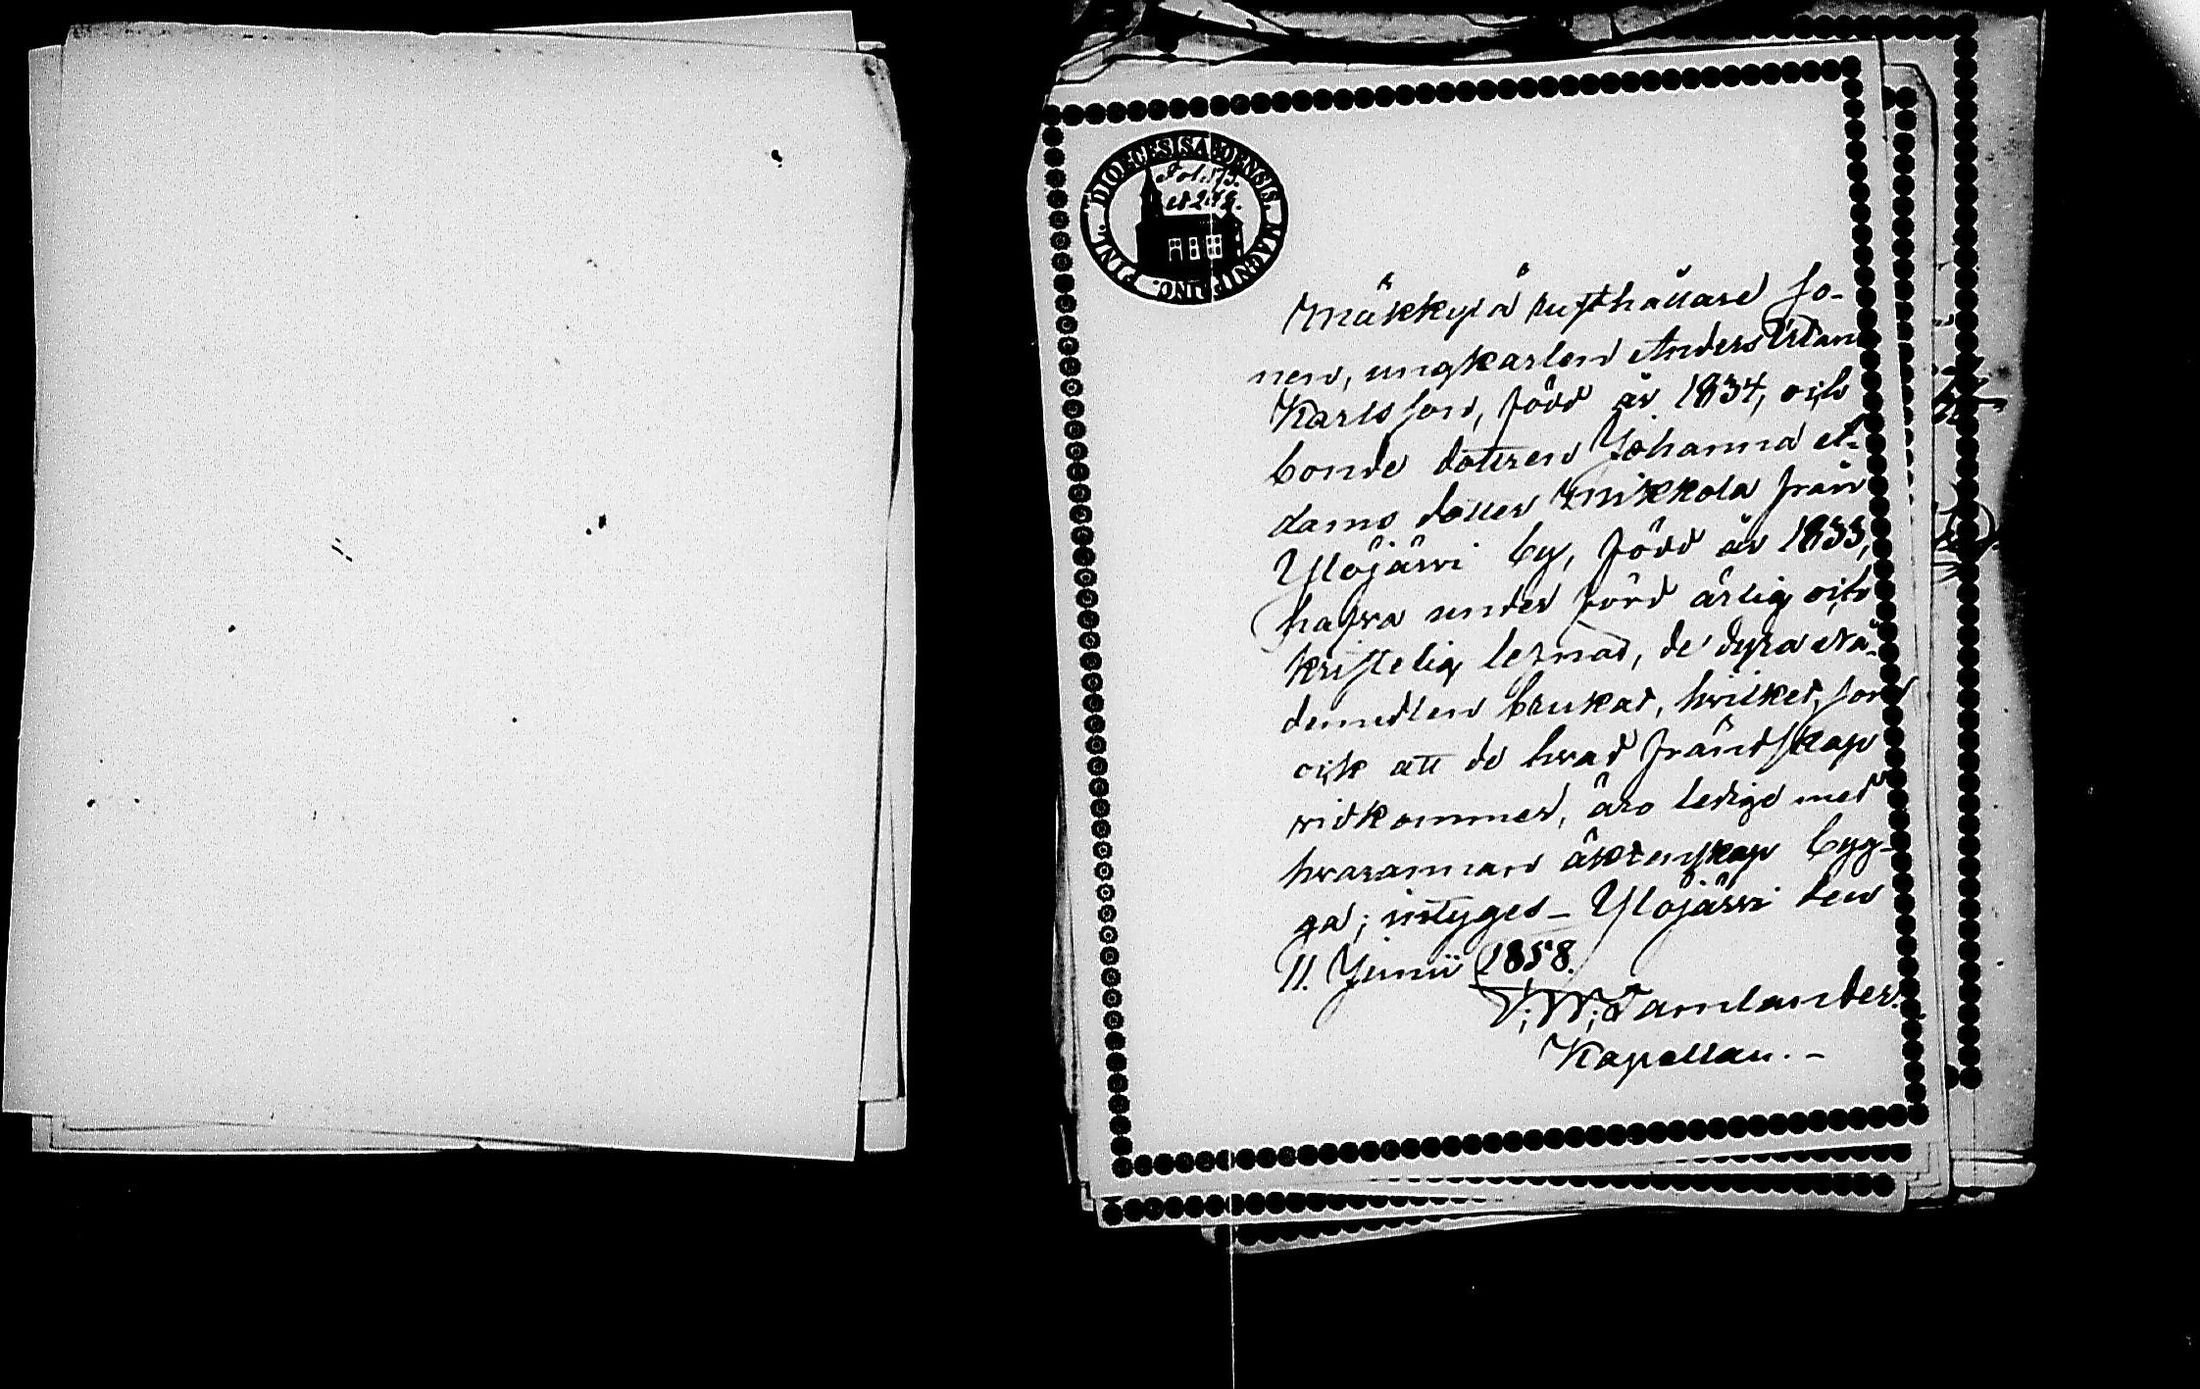 DIOECESIS ABOENSIS. MAGNI PRINC. FINL.
Fol. 173.
et 219.
Mäkkylä rusthållare so-
nen, ungkarlen Anders Wilan
Karlsson, född år 1834, och
bonde dottren Johanna A-
dams dotter Mikkola från
Ylöjärvi by, född år 1833,
hafva under förd ärlig och
kristelig lefnad, de dyra nå-
demedlen brukat, hvilket, som
ock att de hvad fräntskap
vidkommer, äro ledige med
hvarannan äktenskap byg-
ga; intyges – Ylöjärvi den
11. Junii 1858.
V: W: Tamlander.
Kapellan. –